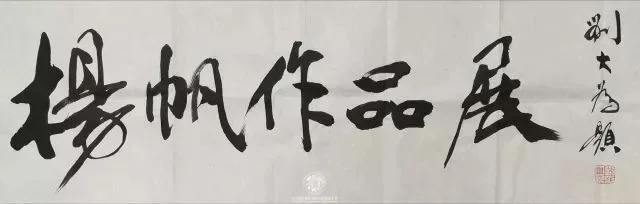 楊帆作品展
劉大為題